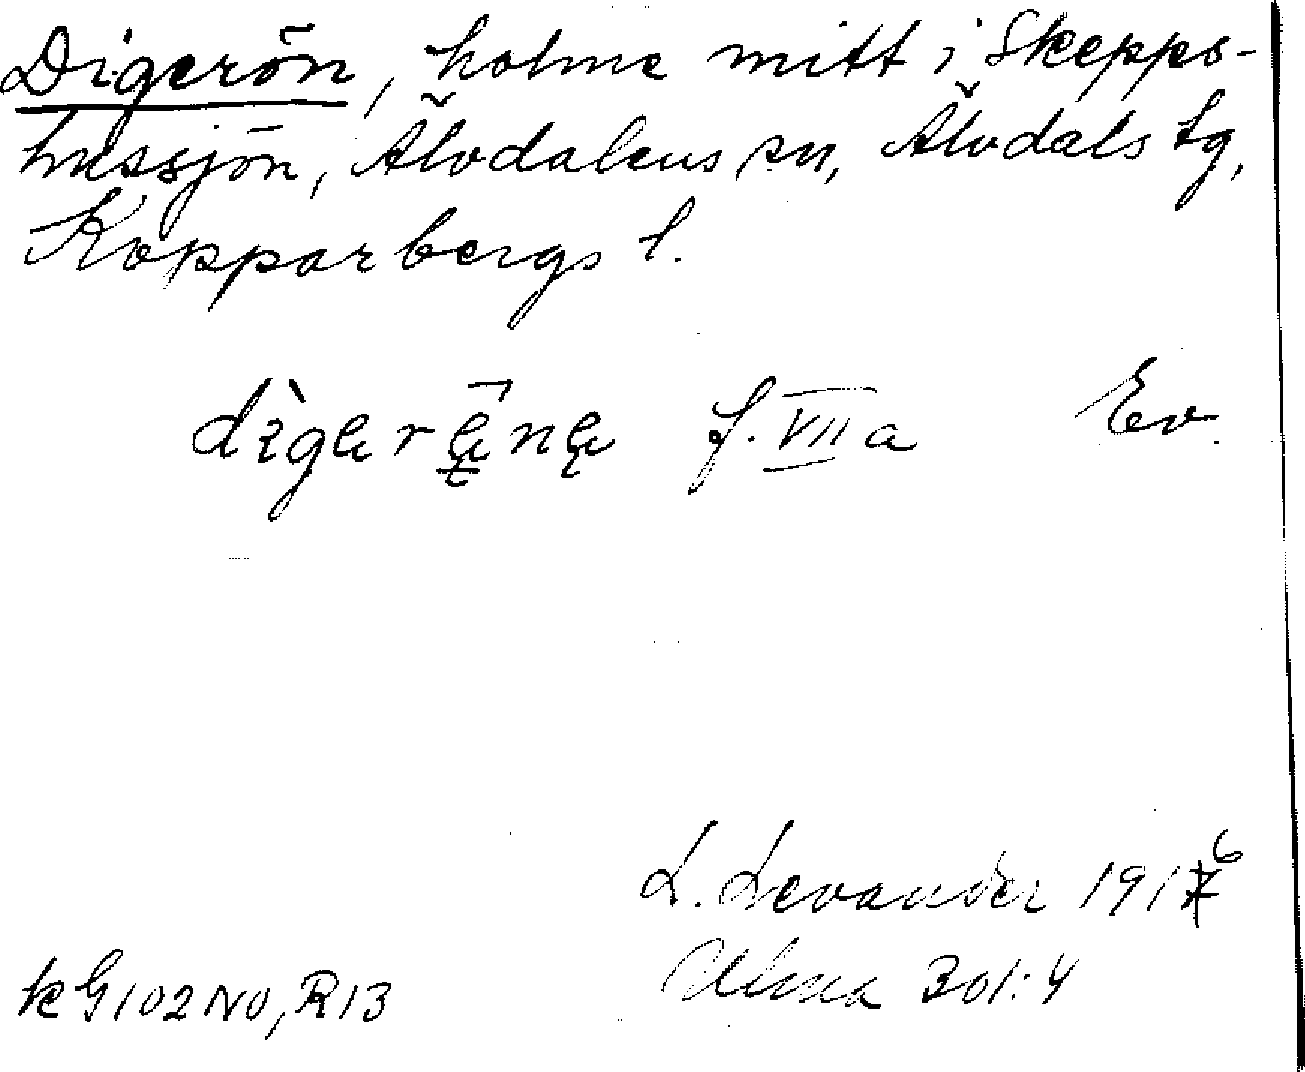 Digerön, holme mitt i Skepps-
hussjön, Älvdalens sn, Älvdals tg,
Kopparbergs l.
f. VII a Ev.
L. Levander 1916
Ulma 301:4
k G102NO, R13